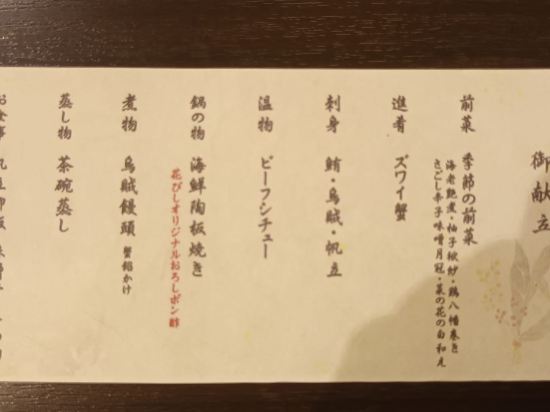 御献立
前菜 季節の前菜
海老艶煮・柚子袱紗・鶏八幡巻き
さごし辛子味噌月冠・菜の花の白和え
進肴 ズワイ蟹
刺身 鮪・烏賊・帆立
温物 ビーフシチュー
鍋の物 海鮮陶板焼き
花びしオリジナルおろしポン酢
煮物 烏賊饅頭 蟹餡かけ
蒸し物 茶碗蒸し
お食事